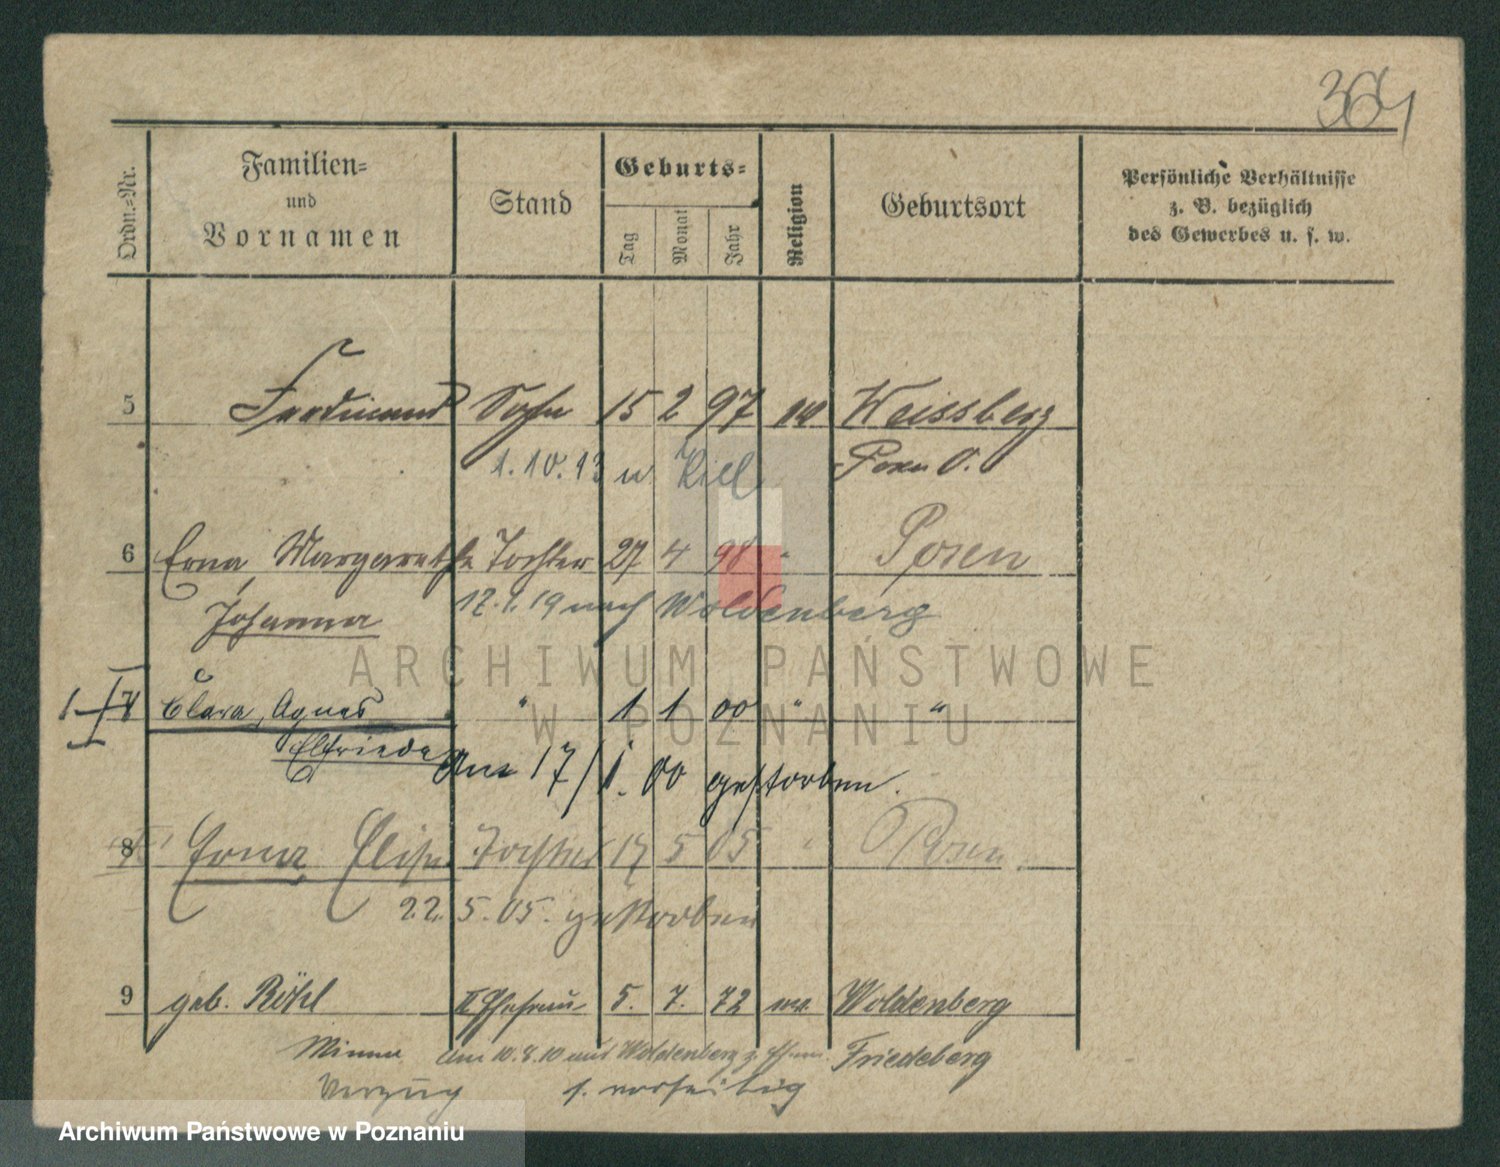 364
Ordn.-Nr.
Familien-
und
Vornamen
Stand
Geburts-
Tag Monat Jahr
Religion
Geburtsort
Persönliche Verhältnisse
z. B. bezüglich
des Gewerbes u. s. w.
5 Ferdinand Sohn 15 2 97 Weissberg
1.10.13 n Kiel Posen O.
6 Erna Margarethe Tochter 27 4 98 " Posen
Johanna 12.1.19 nach Woldenberg
7 Clara, Agnes " 1 1 00 " "
Elfriede Am 17/1. 00 gestorben.
8 Erna Elise Tochter 17 5 05 " Posen
22. 5. 05. gestorben
9 geb. Röhl II Ehefrau 5. 7. 72 ev. Woldenberg
Minna am 10.8.10 aus Woldenberg z. Friedeberg
Verzug
ARCHIWUM PAŃSTWOWE
W POZNANIU
Archiwum Państwowe w Poznaniu